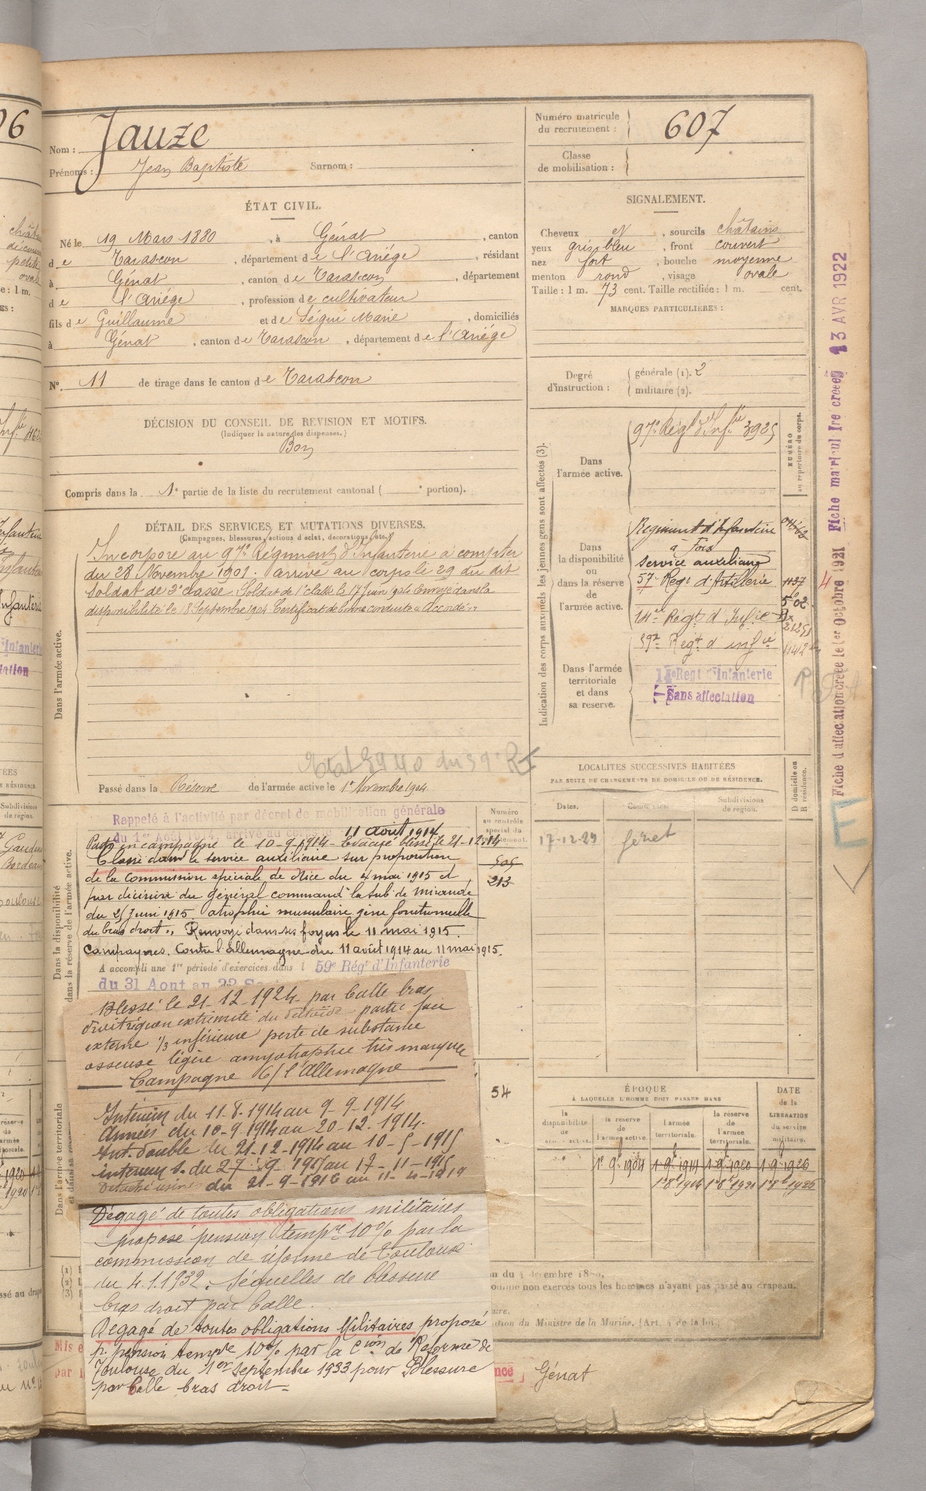 Nom : Jauze
Prénoms : Jean Baptiste Surnom :
Numéro matricule du recrutement : 607
Classe de mobilisation :
ÉTAT CIVIL.
Né le 19 Mars 1880, à Génat, canton
de Tarascon, département de l'Ariège, résidant
à Génat, canton de Tarascon, département
de l'Ariège, profession de cultivateur
fils de Guillaume et de Ségui Marie, domiciliés
à Génat, canton de Tarascon, département de l'Ariège
N°. 11 de tirage dans le canton de Tarascon
SIGNALEMENT.
Cheveux et, sourcils châtains
yeux gris bleu, front couvert
nez fort, bouche moyenne
menton rond, visage ovale
Taille : 1 m. 73 cent. Taille rectifiée : 1 m. cent.
MARQUES PARTICULIÈRES :
Degré d'instruction : générale (1). 2
militaire (2).
DÉCISION DU CONSEIL DE REVISION ET MOTIFS.
(Indiquer la nature des dispenses.)
Bon
Compris dans la 1e partie de la liste du recrutement cantonal ( portion).
DÉTAIL DES SERVICES ET MUTATIONS DIVERSES.
(Campagnes, blessures, actions d'éclat, décorations, etc.)
Incorporé au 97e Régiment d'Infanterie à compter
du 28 Novembre 1901. arrivé au corps le 29 du dit
Soldat de 2e classe. Soldat de 1e classe le 17 Juin 1903. Envoyé dans la
disponibilité le 18 Septembre 1904. Certificat de bonne conduite "Accordé".
Dans l'armée active.
Passé dans la Réserve de l'armée active le 1er Novembre 1904
Indication des corps auxquels les jeunes gens sont affectés (3).
NUMÉRO au répertoire du corps.
Dans l'armée active. 97e Régt d'Inf.ie 3925
Dans la disponibilité ou dans la réserve de l'armée active.
Régiment d'Infanterie
à Foix
Service auxiliaire
57e Régt d'Artillerie 1137
14e Régt d'Inf.ie
59e Regt d'inf.ie
Dans l'armée territoriale et dans sa réserve.
Régt d'Infanterie
Sans affectation
Fiche d'affectation créée le 1er octobre 1921 Fiche matricul 1re créée 13 AVR 1922
LOCALITÉS SUCCESSIVES HABITÉES
PAR SUITE DE CHANGEMENTS DE DOMICILE OU DE RÉSIDENCE.
Dates. Communes. Subdivisions de région. D. domicile ou R. résidence.
17-12-29 Génat
Dans la disponibilité ou dans la réserve de l'armée active.
Rappelé à l'activité par décret de mobilisation générale
du 1er Août 1914, arrivé au corps 11 août 1914
Parti en campagne le 10-9-1914. Evacué blessé le 21-12-14
Classé dans le service auxiliaire sur proposition
de la Commission spéciale de Nice du 4 mai 1915 et
par décision du général command la sub de Mirande
du 25 Juin 1915 atrophie musculaire gêne fonctionnelle
du bras droit". Renvoyé dans ses foyers le 11 mai 1915.
Campagnes. Contre l'Allemagne du 11 août 1914 au 11 mai 1915.
A accompli une 1re période d'exercices dans l 59e Régt d'Infanterie
du 31 Aout au
Blessé le 21-12-1924 par balle bras
externe 1/3 inférieure perte de substance
osseuse légère amyotrophie très marquée
Campagne C/ l'Allemagne
Intérieur du 11.8.1914 au 9-9-1914
Armées du 10-9-1914 au 20-12-1914
Int. double du 21-12-1914 au 10-5-1915
intérieur s. du 27-9-1915 au 17-11-1915
détaché usine du 21-9-1916 au 11-4-1919
Dégagé de toutes obligations militaires
proposé pension tempre 10% par la
commission de réforme de Toulouse
du 4.1.1932. Séquelles de blessure
bras droit par balle.
Dégagé de toutes obligations Militaires proposé
pr pension tempre 10% par la Cion de Réforme de
Toulouse du 1er septembre 1933 pour Blessure
par balle bras droit
Dans l'armée territoriale
54
ÉPOQUE
À LAQUELLE L'HOMME DOIT PASSER DANS
la disponibilité de l'armée active. la réserve de l'armée active. l'armée territoriale. la réserve de l'armée territoriale.
DATE de la LIBÉRATION du service militaire.
1er 9bre 1904
comme non exercés tous les hommes n'ayant pas passé au drapeau.
du Ministre de la Marine. (Art. 4 de la loi.)
Génat